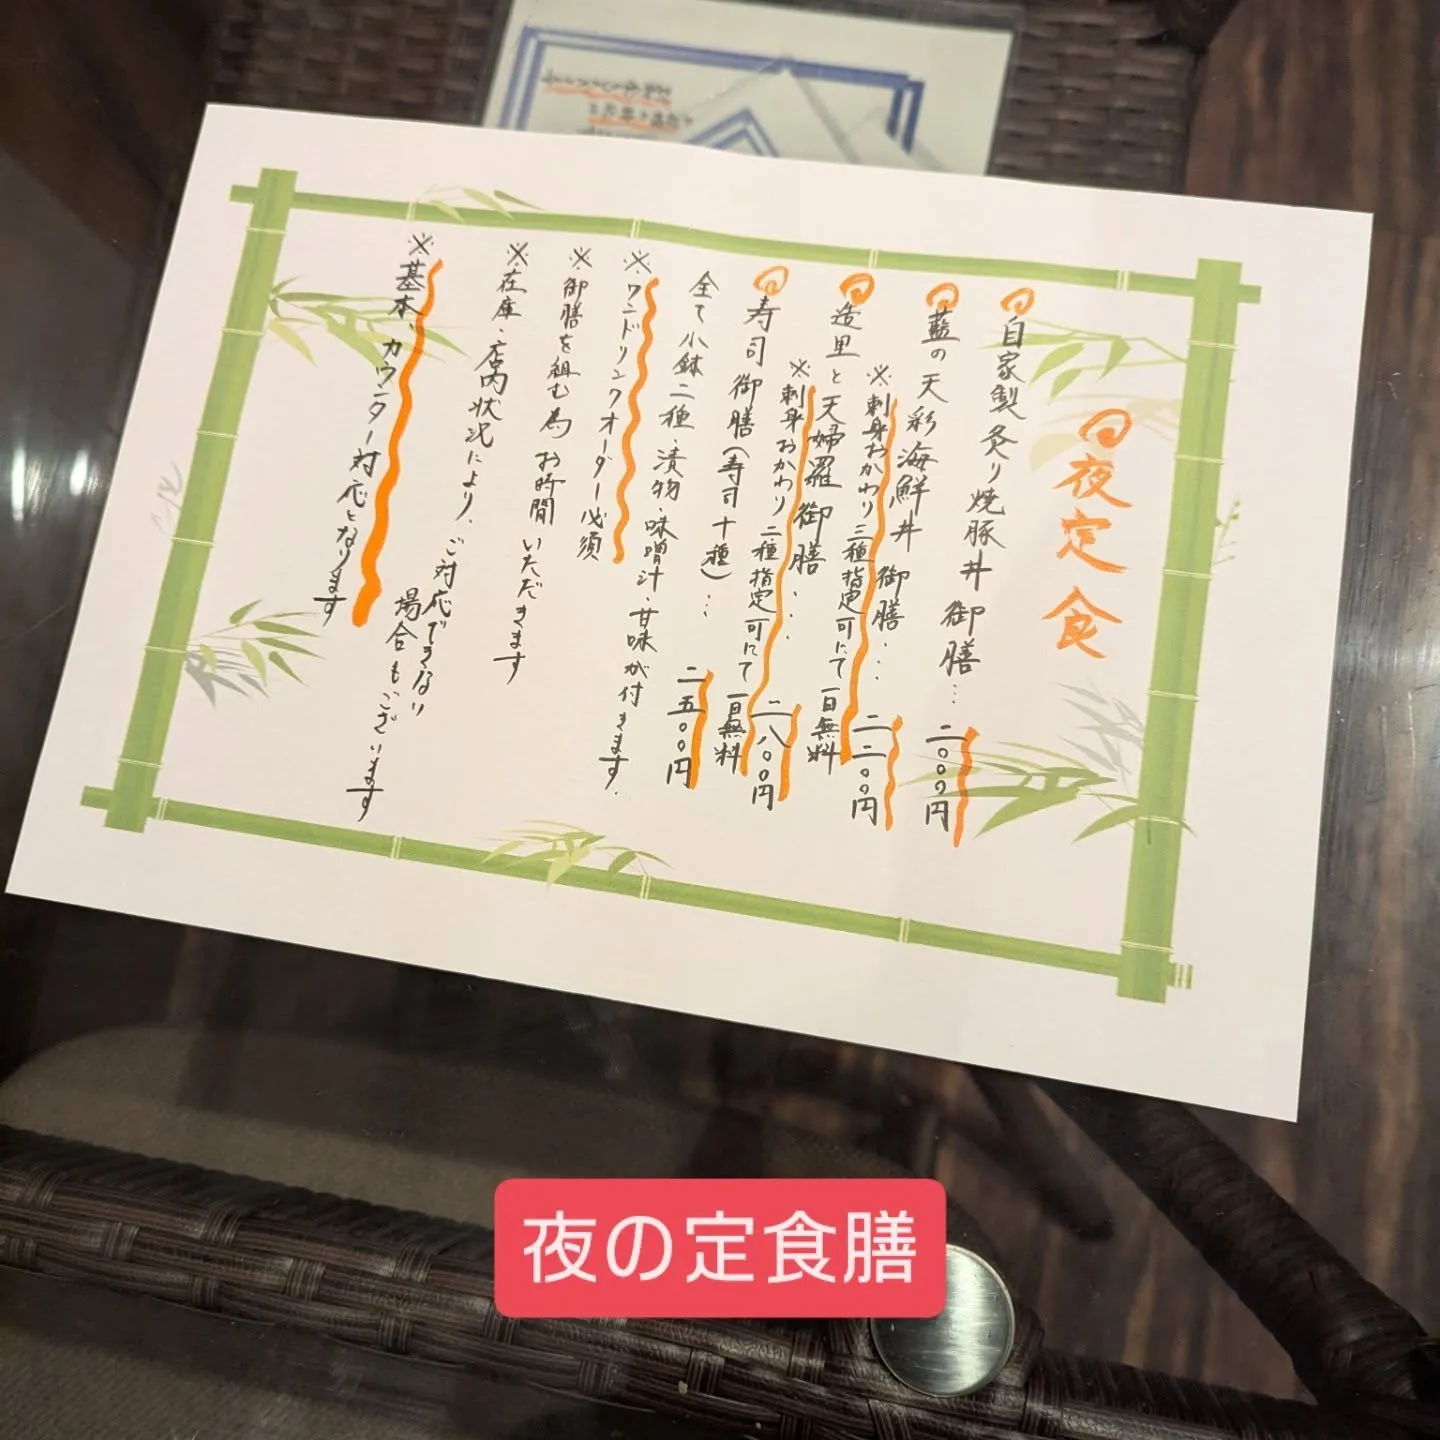 夜定食
自家製炙り焼豚丼御膳…二〇〇〇円
藍の天彩海鮮丼御膳…二二〇〇円
※刺身おかわり三種指定可にて一回無料
造里と天婦羅御膳…二八〇〇円
※刺身おかわり二種指定可にて一回無料
寿司御膳(寿司十種)…二五〇〇円
全て小鉢二種・漬物・味噌汁・甘味が付きます.
※ワンドリンクオーダー必須
※御膳を組む為お時間いただきます
※在庫・店内状況により、ご対応できない
場合もございます
※基本、カウンター対応となります
夜の定食膳